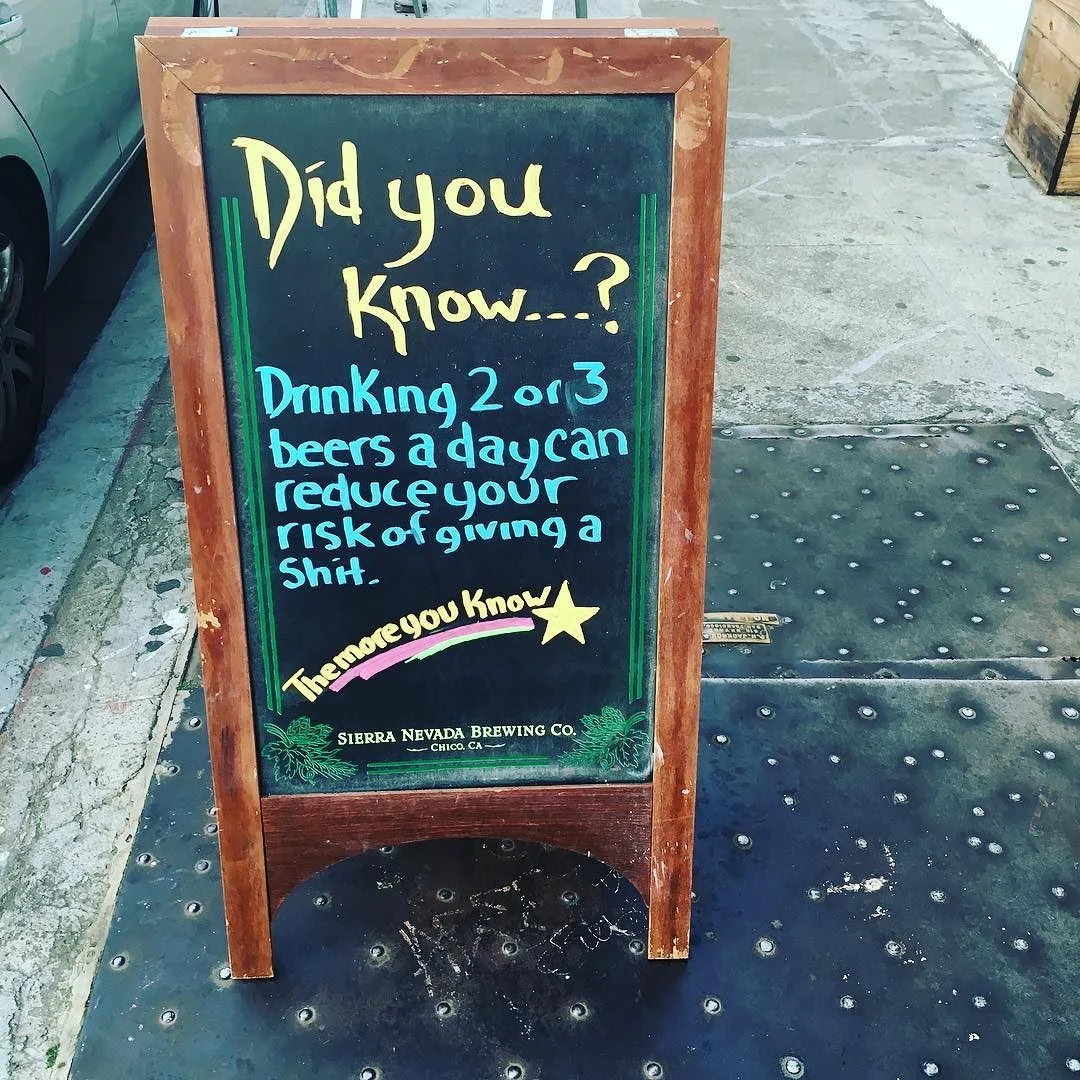 Did you
Know...?
Drinking 2 or 3
beers a day can
reduce your
risk of giving a
shit.
The more you Know
SIERRA NEVADA BREWING CO.
CHICO, CA